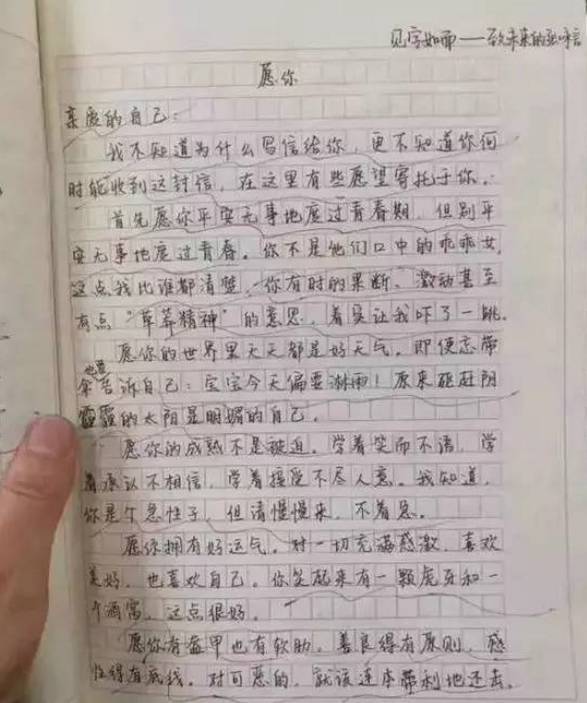 见字如面——致未来的张咏言
愿你
亲爱的自己：
我不知道为什么写信给你，更不知道你何
时能收到这封信，在这里有些愿望寄托于你。
首先愿你平安无事地度过青春期，但别平
安无事地度过青春。你不是他们口中的乖乖女，
这点我比谁都清楚，你有时的果断、激动甚至
有点“草莽精神”的意思，着实让我吓了一跳。
愿你的世界里天天都是好天气。即便忘带
伞也要告诉自己：宝宝今天偏要淋雨！原来驱赶阴
霾的太阳是明媚的自己。
愿你的成熟不是被迫。学着笑而不语，学
着承认不相信，学着接受不尽人意。我知道，
你是个急性子，但请慢慢来，不着急。
愿你拥有好运气。对一切充满感激，喜欢
美好，也喜欢自己。你笑起来有一颗虎牙和一
个酒窝，这点很好。
愿你有盔甲也有软肋，善良得有原则，感
性得有底线。对可恶的，就该连本带利地还击。